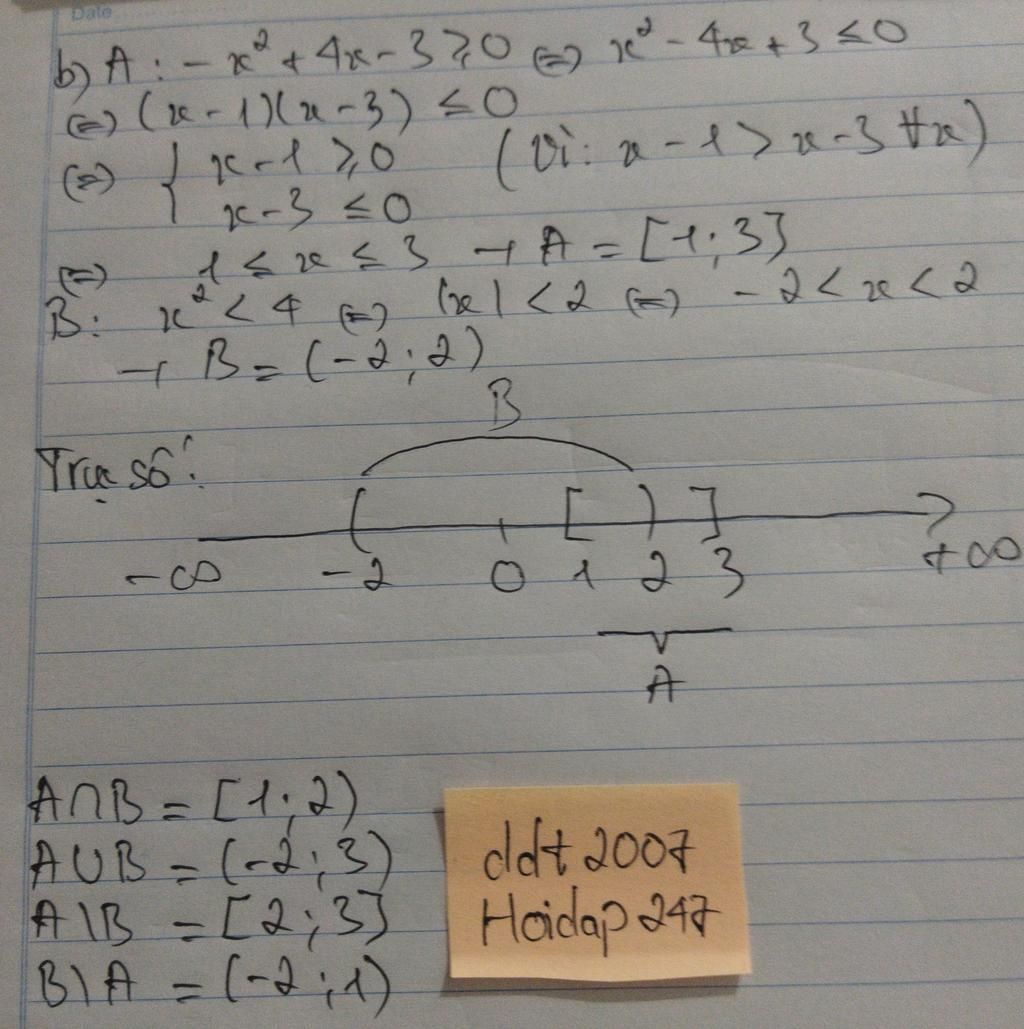 Date
b) A : - x² + 4x - 3 ≥ 0 ⇔ x² - 4x + 3 ≤ 0
⇔ (x - 1)(x - 3) ≤ 0
⇔ { x - 1 ≥ 0 (Vì: x - 1 > x - 3 ∀x)
x - 3 ≤ 0
⇔ 1 ≤ x ≤ 3 → A = [1; 3]
B: x² < 4 ⇔ |x| < 2 ⇔ - 2 < x < 2
→ B = (-2; 2)
B
Trục số:
( [ ) ]
-∞ -2 0 1 2 3 +∞
A
A∩B = [1; 2)
A∪B = (-2; 3)
A\B = [2; 3]
B\A = (-2; 1)
ddt 2007
Hoidap 247